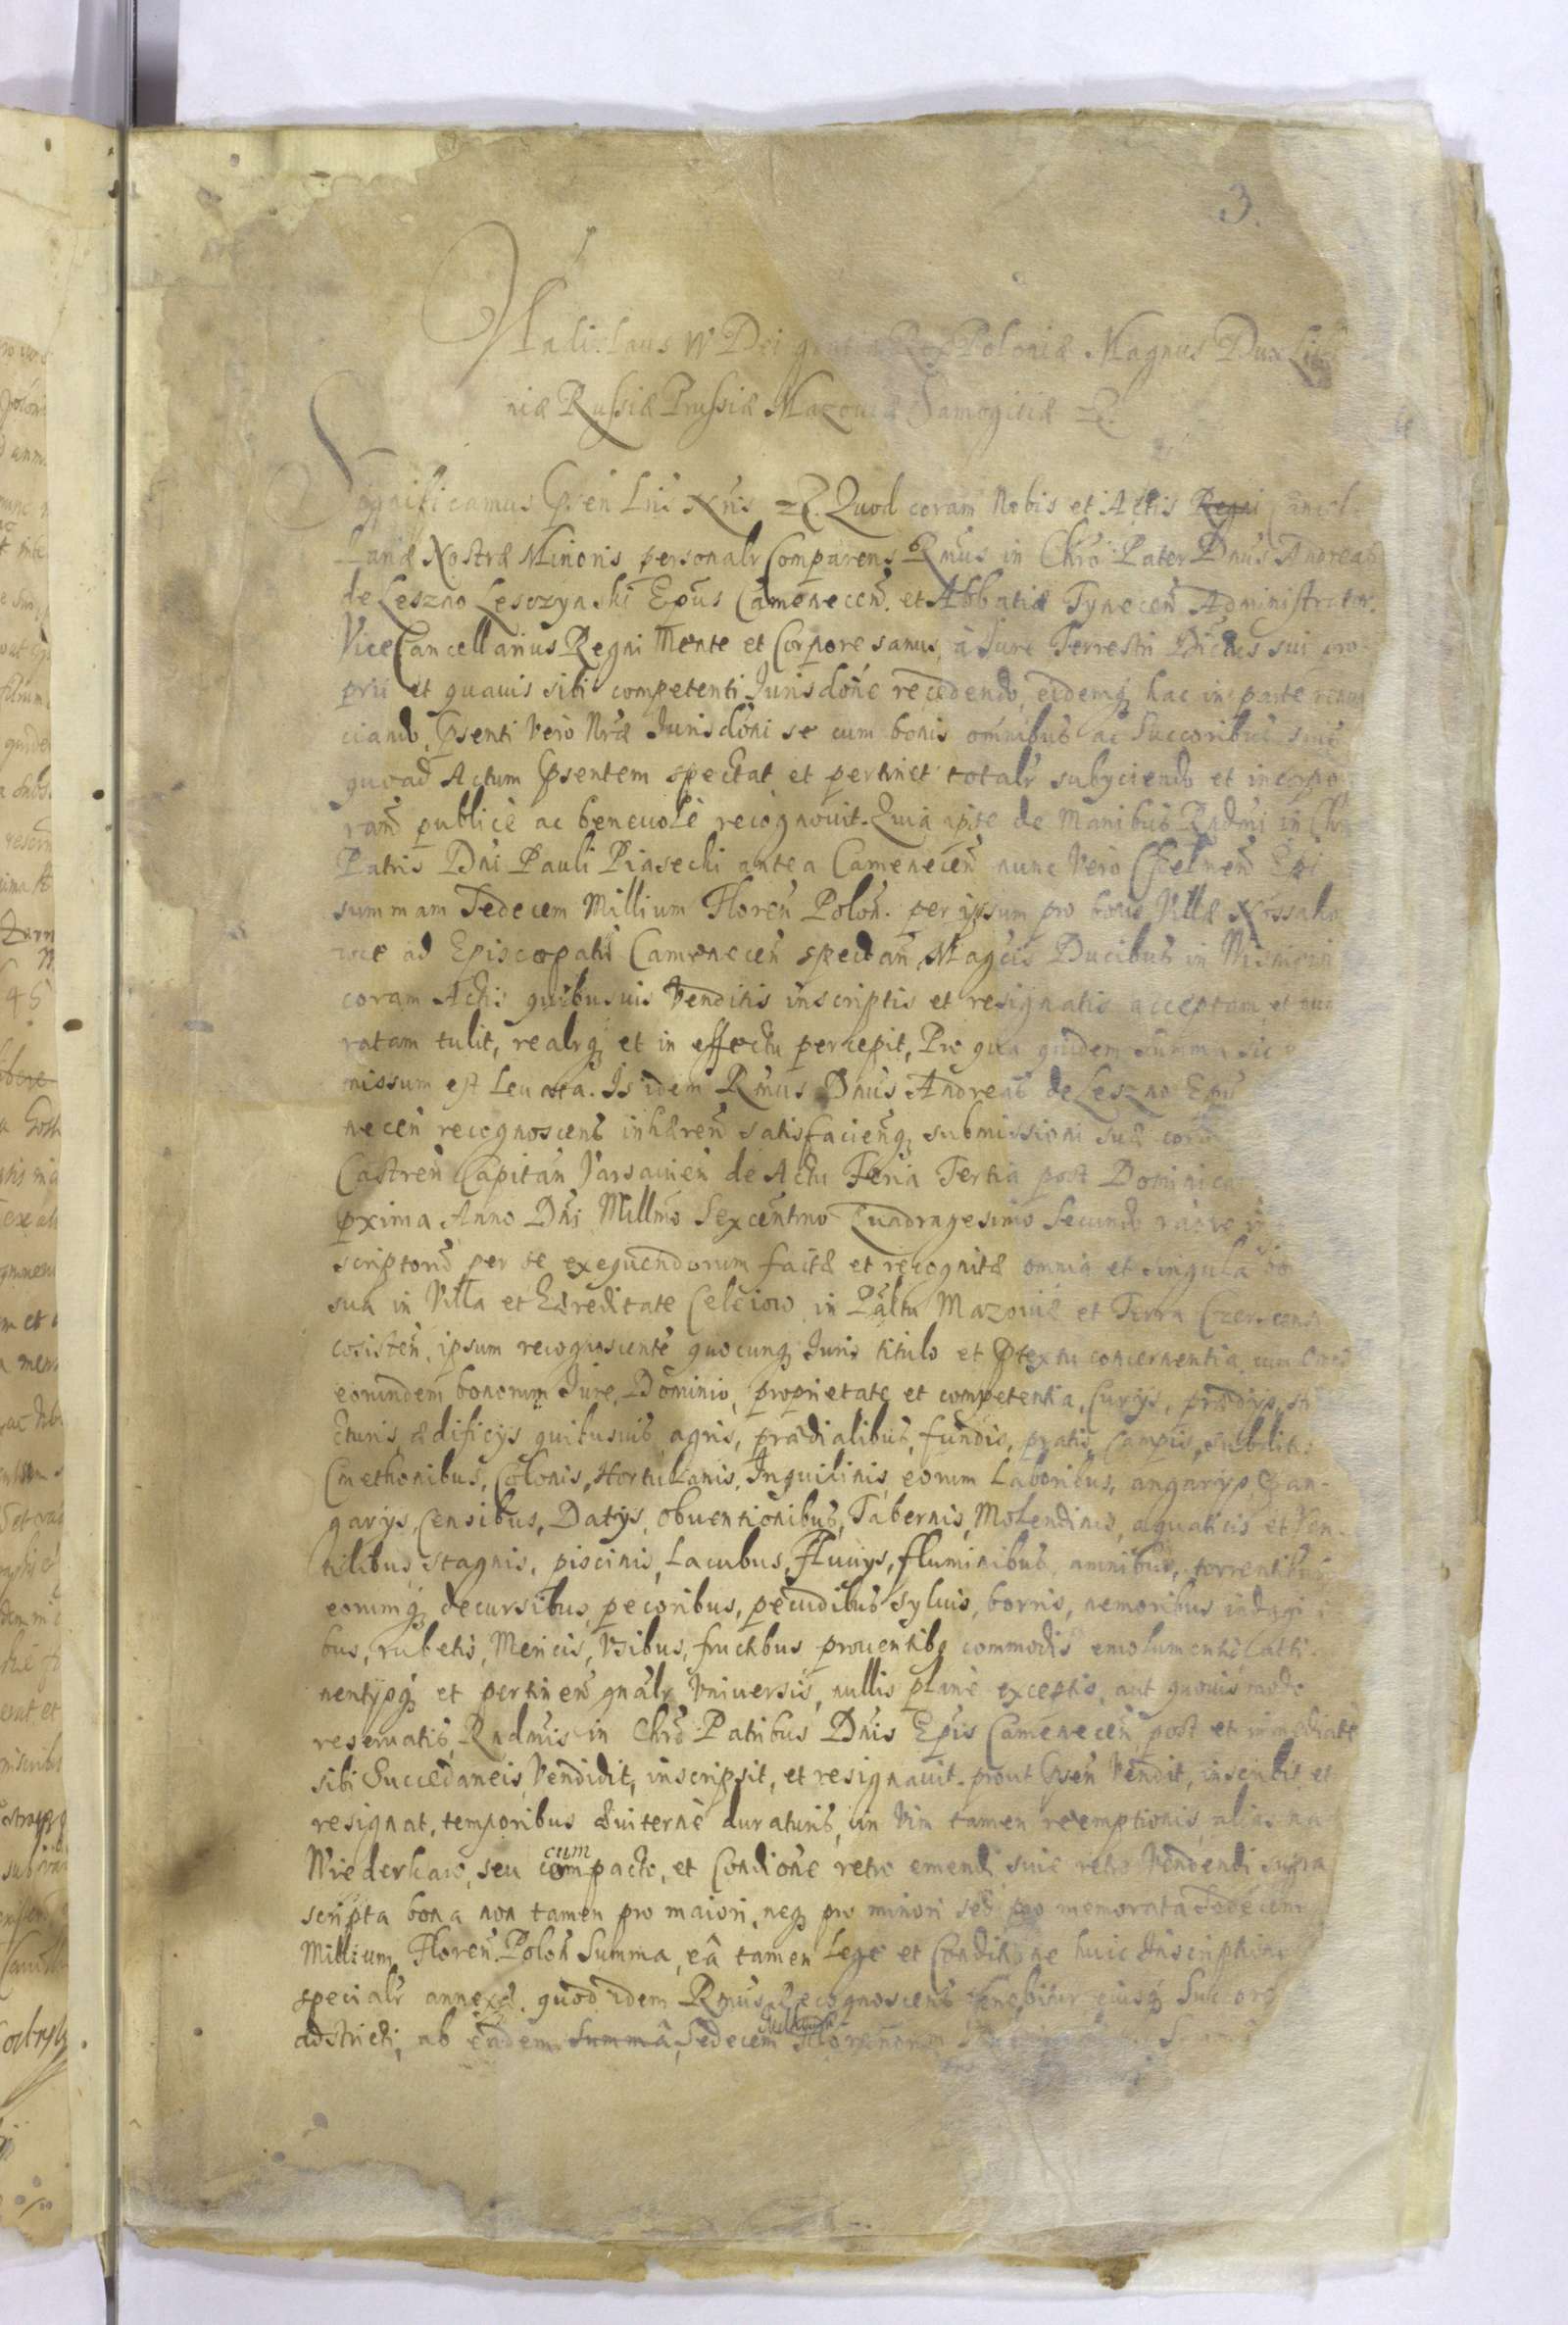 3.
Vladislaus IV Dei gratia Rex Poloniæ Magnus Dux Lith
niæ Russiæ Prussiæ Mazouiæ Samogitiæ
Significamus Psen Lris Nris. Quod coram Nobis et Actis Regni Cancel
lariæ Nostræ Minoris personalr Comparens Rmus in Chro Pater Dnus Andreas
de Leszno Lesczynski Epus Camenecen. et Abbatiæ Tynecen Administrator.
ViceCancellarius Regni Mente et Corpore sanus, à Iure Terrestri Districtus sui pro
prii et quauis sibi competenti Jurisdone recedendo, eidemq hac in parte renun
ciando, Psenti Vero Nræ Jurisdoni se cum bonis omnibus ac Succoribus suis
quoad Actum Psentem spectat et pertinet totalr subyciendo et incorpo
rand publicè ac beneuolè recognouit. Quia ipse de Manibus Rndmi in Chro
Patris Dni Pauli Piasecki antea Camenecen nunc Vero Chelmen Epi
summam Sedecem Millium Floren Polon. per ipsum pro bonis Villæ
ad Episcopatu Camenecen spectan Magcis Ducibus in
coram Actis quibusuis Venditis inscriptis et resignatis acceptam et
ratam tulit, realrq et in effectu percepit, Pro qua quidem Summa sic
missum est leuata. Is idem Rmus Dnus Andreas de Leszno Epus
necen recognoscens inhæren satisfacienq submissioni suæ coram
Castren Capitan Varsauien de Actu Feria Tertia post Dominicam
pxima Anno Dni Millmo Sexcentmo Quadragesimo Secundo raoe in
scriptord per se exequendorum factæ et recognitæ omnia et singula bo
sua in Villa et Hæreditate Celeiow in Paltu Mazouiæ et Terra Czercensi
cosisten, ipsum recognoscente quocunq Iuris titulo et Ptextu concernentia, cum omni
eorundem bonorum Iure, Dominio, proprietate et competentia, Curijs, prædijs, stru
cturis, ædificijs quibusuis, agris, prædialibus, fundis, pratis, Campis, subditis
Cmethonibus, Colonis, Hortulanis, Inquilinis, eorum Laboribus, angarijs, Peran-
garijs, Censibus, Datijs, obuentionibus, Tabernis, Molendinis, aquaticis et Ven-
tilibus, stagnis, piscinis, Lacubus, Fluuijs, fluminibus, amnibus, torrentibus
eorumq decursibus, pecoribus, pecudibus syluis, borris, nemoribus indagi i
bus, rubetis, Mericis, Vsibus, fructibus prouentibq commodis emolumentis atti-
nentijsq et pertinen gnalr Vniuersis, nullis planè exceptis, aut quouis modo
reseruatis, Rndmis in Chro Patribus Dnis Epis Camenecen post et immediatè
sibi Succedaneis Vendidit, inscripsit, et resignauit. prout Psen Vendit, inscribit et
resignat, temporibus æuiternè duraturis, in Vim tamen reemptionis, alias na
Wiederkaw, seu cum compacto, et Condione retro emendi siue retro Vendendi supra
scripta bona non tamen pro maiori, neq pro minori sed pro memorata Sedecem
Millium Floren Polon Summa, eâ tamen Lege et Conditione huic Inscriptioni
specialr annexa. quod idem Rmus Recognoscens tenebitur eiusq Succores
adstricti, ab eadem Summâ, Sedecem Millium Florenorum